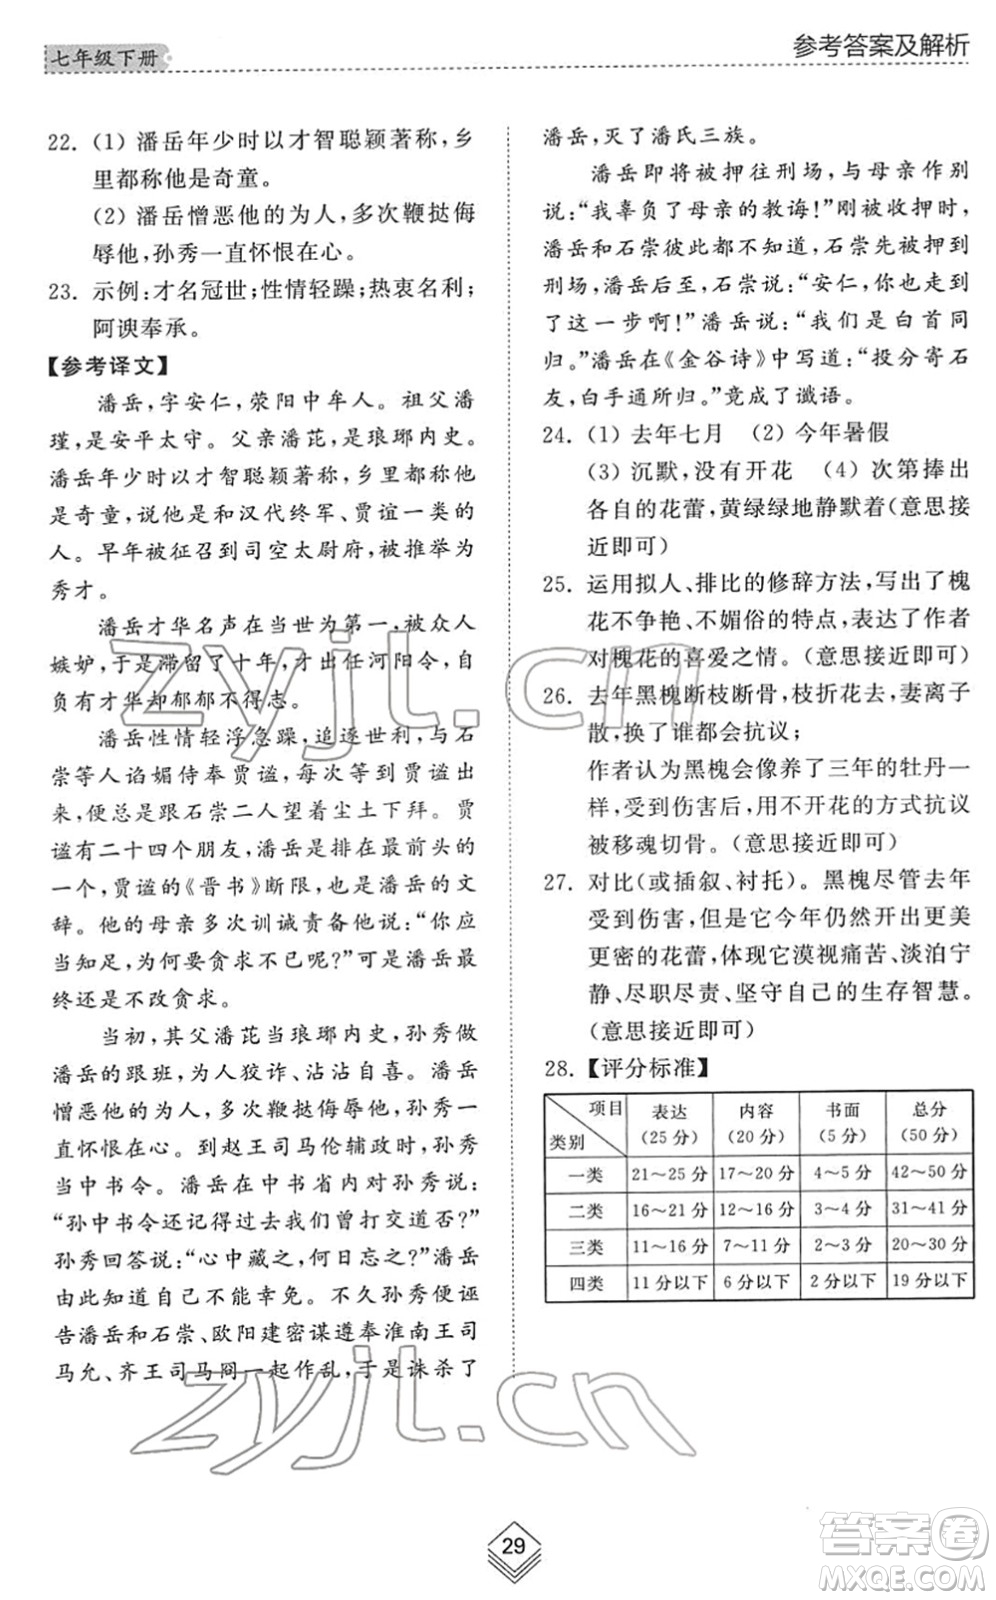 七年级下册
参考答案及解析
22. (1) 潘岳年少时以才智聪颖著称,乡
里都称他是奇童。
(2) 潘岳憎恶他的为人,多次鞭挞侮
辱他,孙秀一直怀恨在心。
23. 示例:才名冠世;性情轻躁;热衷名利;
阿谀奉承。
【参考译文】
潘岳,字安仁,荥阳中牟人。祖父潘
瑾,是安平太守。父亲潘芘,是琅琊内史。
潘岳年少时以才智聪颖著称,乡里都称他
是奇童,说他是和汉代终军、贾谊一类的
人。早年被征召到司空太尉府,被推举为
秀才。
潘岳才华名声在当世为第一,被众人
嫉妒,于是滞留了十年,才出任河阳令,自
负有才华却郁郁不得志。
潘岳性情轻浮急躁,追逐世利,与石
崇等人谄媚侍奉贾谧,每次等到贾谧出
来,便总是跟石崇二人望着尘土下拜。贾
谧有二十四个朋友,潘岳是排在最前头的
一个,贾谧的《晋书》断限,也是潘岳的文
辞。他的母亲多次训诫责备他说:“你应
当知足,还要贪求不已呢?”可是潘岳最
终还是不改贪求。
当初,其父潘芘当琅琊内史,孙秀做
潘岳的跟班,为人狡诈、沾沾自喜。潘岳
憎恶他的为人,多次鞭挞侮辱他,孙秀一
直怀恨在心。到赵王司马伦辅政时,孙秀
当中书令。潘岳在中书省内对孙秀说:
“孙中书令还记得过去我们曾打交道否?”
孙秀回答说:“心中藏之,何日忘之?”潘岳
由此知道自己不能幸免。不久孙秀便诬
告潘岳和石崇、欧阳建密谋遵奉淮南王司
马允、齐王司马冏一起作乱,于是诛杀了
潘岳,灭了潘氏三族。
潘岳即将被押往刑场,与母亲作别
说:“我辜负了母亲的教诲!”刚被收押时,
潘岳和石崇彼此都不知道,石崇先被押到
刑场,潘岳后至,石崇说:“安仁,你也到
了这一步啊!”潘岳说:“我们是白首同
归。”潘岳在《金谷诗》中写道:“投分寄石
友,白手通所归。”竟成了谶语。
24. (1) 去年七月 (2) 今年暑假
(3) 沉默,没有开花 (4) 次第捧出
各自的花蕾,黄绿绿地静默着(意思接
近即可)
25. 运用拟人、排比的修辞方法,写出了槐
花不争艳、不媚俗的特点,表达了作者
对槐花的喜爱之情。(意思接近即可)
26. 去年黑槐断枝断骨,枝折花去,妻离子
散,换了谁都会抗议;
作者认为黑槐会像养了三年的牡丹一
样,受到伤害后,用不开花的方式抗议
被移魂切骨。(意思接近即可)
27. 对比(或插叙、衬托)。黑槐尽管去年
受到伤害,但是它今年仍然开出更美
更密的花蕾,体现它漠视痛苦、淡泊宁
静、尽职尽责、坚守自己的生存智慧。
(意思接近即可)
28. 【评分标准】
项目 类别 表达(25 分) 内容(20 分) 书面(5 分) 总分(50 分)
一类 21～25 分 17～20 分 4～5 分 42～50 分
二类 16～21 分 12～16 分 3～4 分 31～41 分
三类 11～16 分 7～11 分 2～3 分 20～30 分
四类 11 分以下 6 分以下 2 分以下 19 分以下
zyjl.cn
zyjl.cn
29
答案卷
MXQE.COM